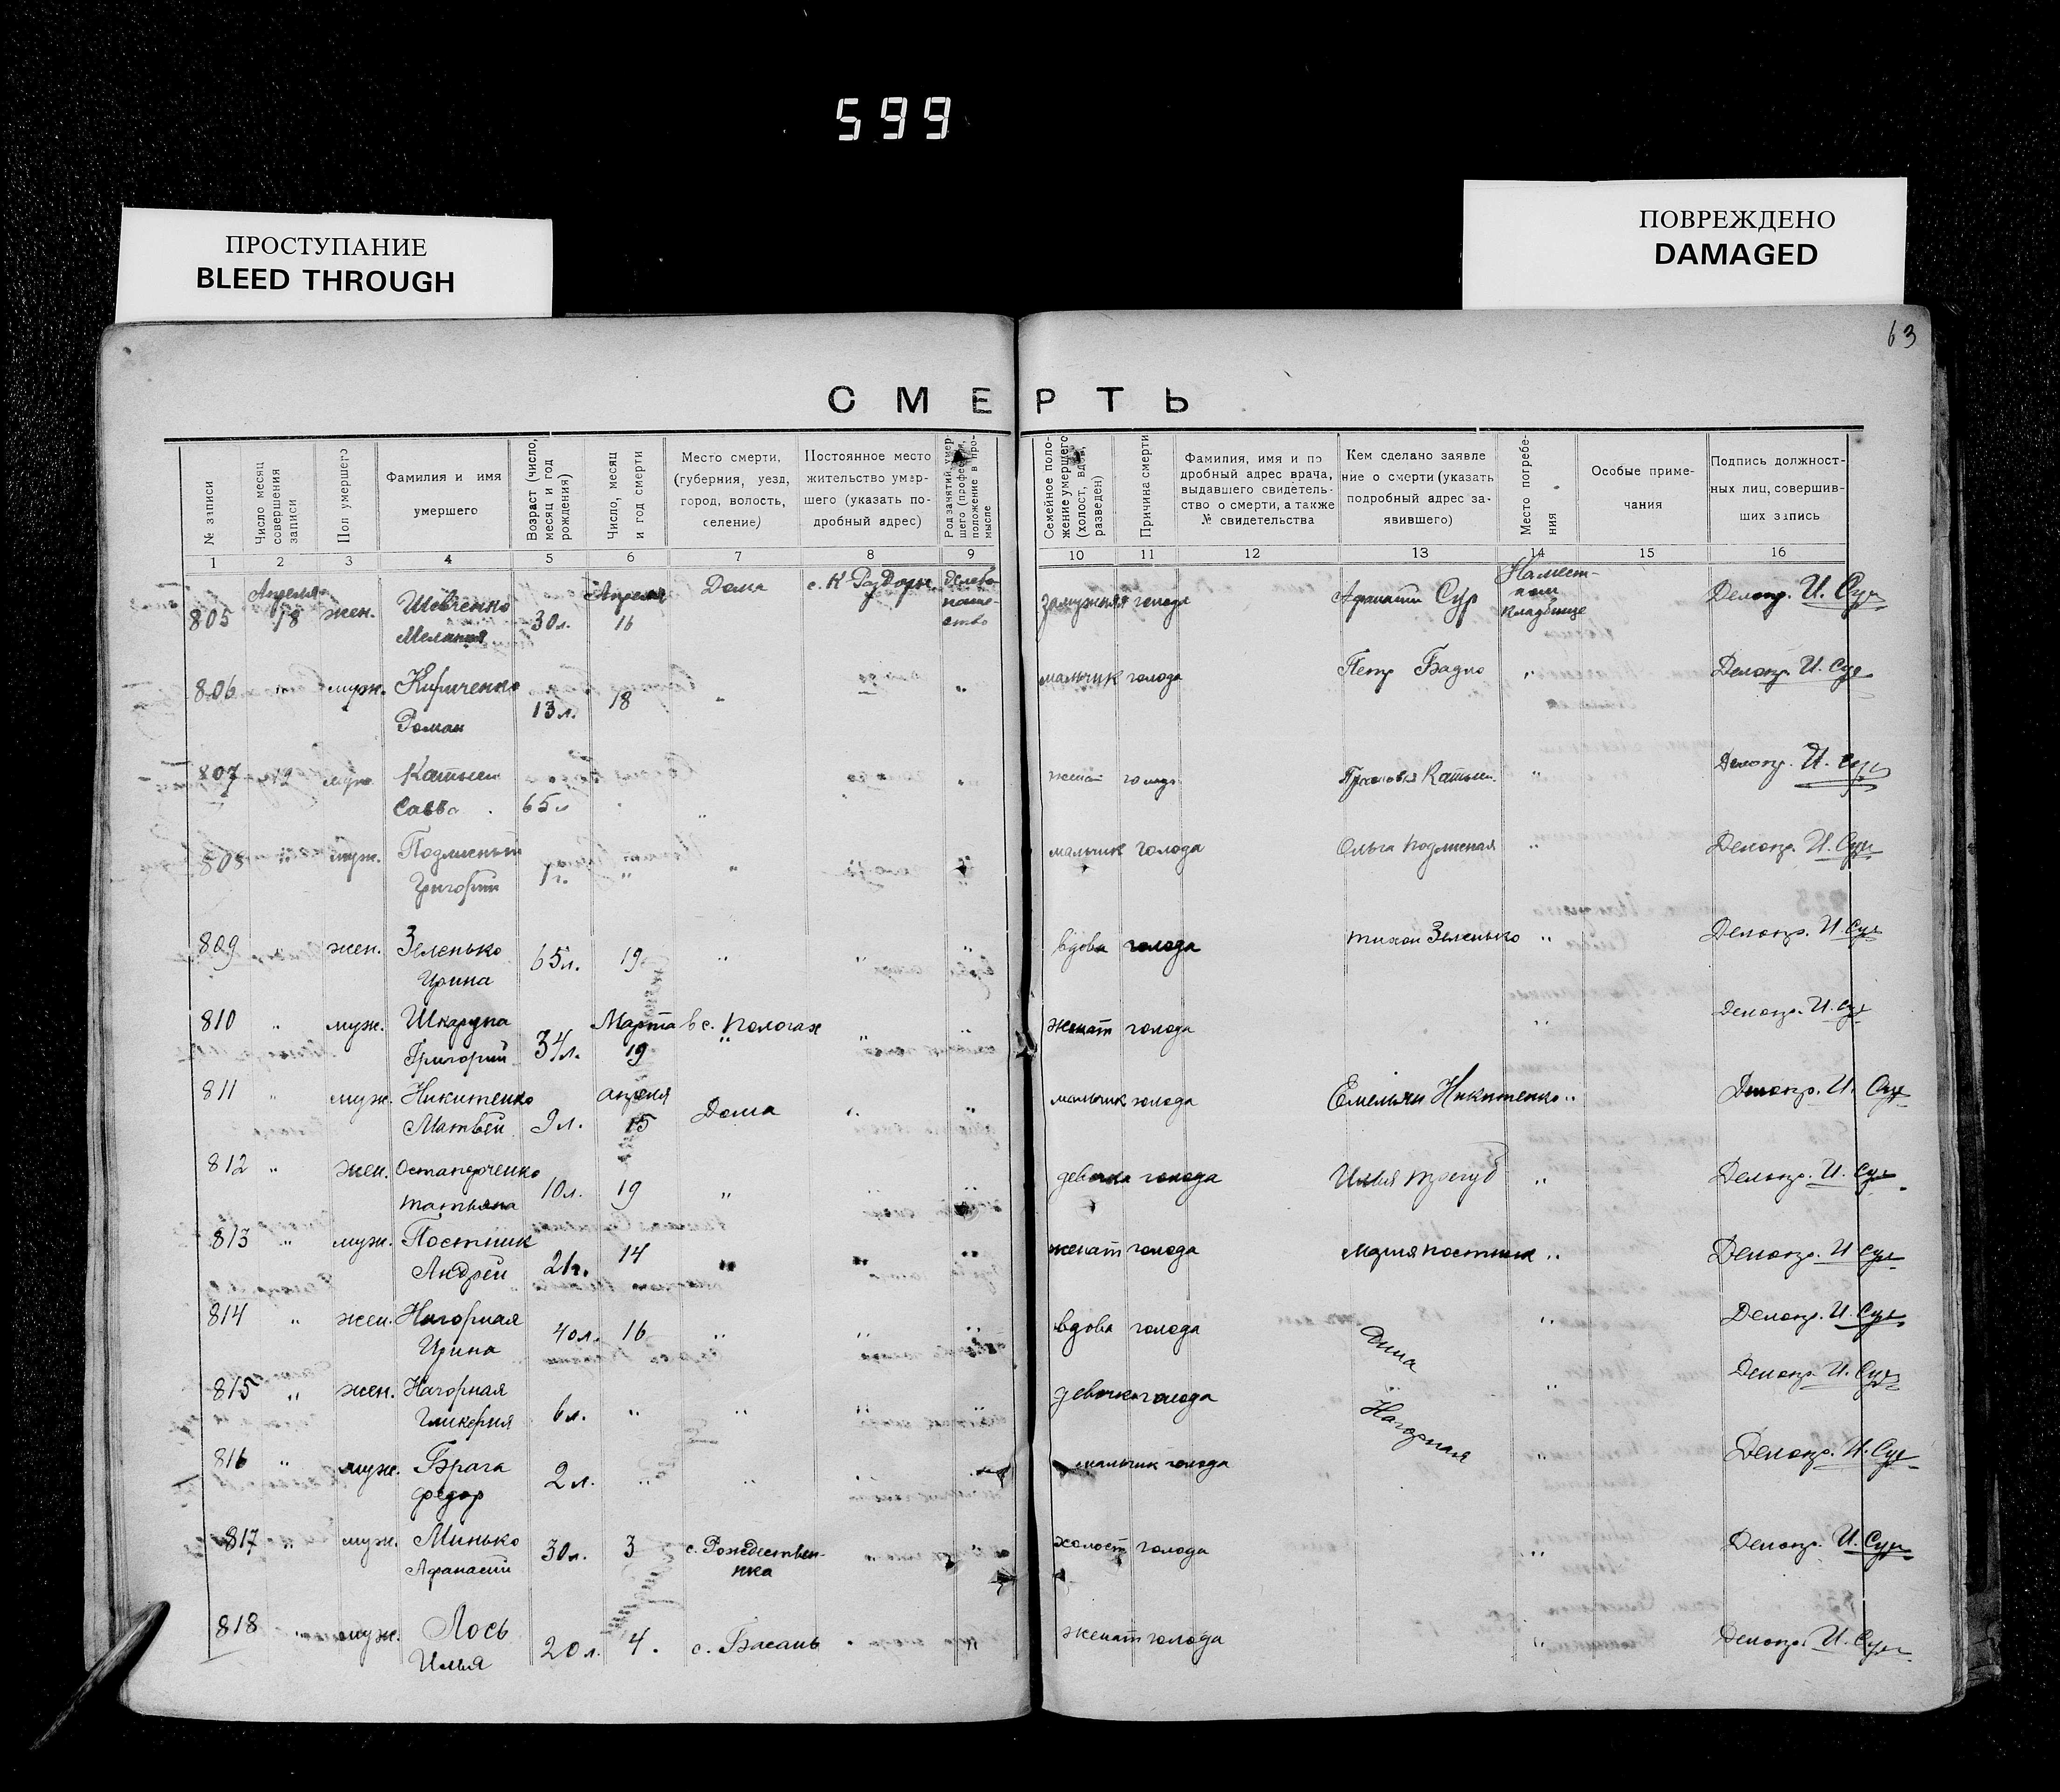 599
ПРОСТУПАНИЕ
BLEED THROUGH
ПОВРЕЖДЕНО
DAMAGED
63
СМЕРТЬ
№ записи
Число месяц совершения записи
Пол умершего
Фамилия и имя умершего
Возраст (число, месяц и год рождения)
Число, месяц и год смерти
Место смерти, (губерния, уезд, город, волость, селение)
Постоянное место жительство умершего (указать подробный адрес)
Род занятий умершего (профессия, положение в промысле
Семейное положение умершего (холост, вдов, разведен)
Причина смерти
Фамилия, имя и подробный адрес врача, выдавшего свидетельство о смерти, а также № свидетельства
Кем сделано заявление о смерти (указать подробный адрес заявившего)
Место погребения
Особые примечания
Подпись должностных лиц, совершивших запись
1 2 3 4 5 6 7 8 9 10 11 12 13 14 15 16
805 Апреля 18 жен. Шевченко Мелания 30л. Апреля 16 Дома замужняя голода Афанасий Сур кладбище Делопр. И. Сур
806 " муж. Кириченко Роман 13л. 18 " " мальчик голода Петр Бадло " Делопр. И. Сур
807 19 муж. Савва 65л " " женат голода " Делопр. И. Сур
808 " муж. Григорий 1г. " " " мальчик голода Ольга " Делопр. И. Сур
809 жен. Зеленько Ирина 65л. 19 " " " вдова голода Тихон Зеленько " Делопр. И. Сур
810 " муж. Шкарупа Григорий 34л. Марта 19 в с. Пологах " " женат голода " Делопр. И. Сур
811 " муж. Никитенко Матвей 9л. апреля 15 Дома " " мальчик голода Емельян Никитенко " Делопр. И. Сур
812 " жен. Татьяна 10л. 19 " " " девочка голода Илья " Делопр. И. Сур
813 " муж. Постник Андрей 21г. 14 " " " женат голода Мария Постник " Делопр. И. Сур
814 " жен. Нагорная Ирина 40л. 16 " " " вдова голода " Делопр. И. Сур
815 " жен. Нагорная Гликерия 6л. " " " " девочка голода Нагорная " Делопр. И. Сур
816 " муж. Брага Федор 2л. " " " мальчик голода " Делопр. И. Сур
817 " муж. Минько Афанасий 30л. 3 с. Рождественка " " холост голода " Делопр. И. Сур
818 " муж. Лось Илья 20л. 4. с. Басань " " женат голода " Делопр. И. Сур